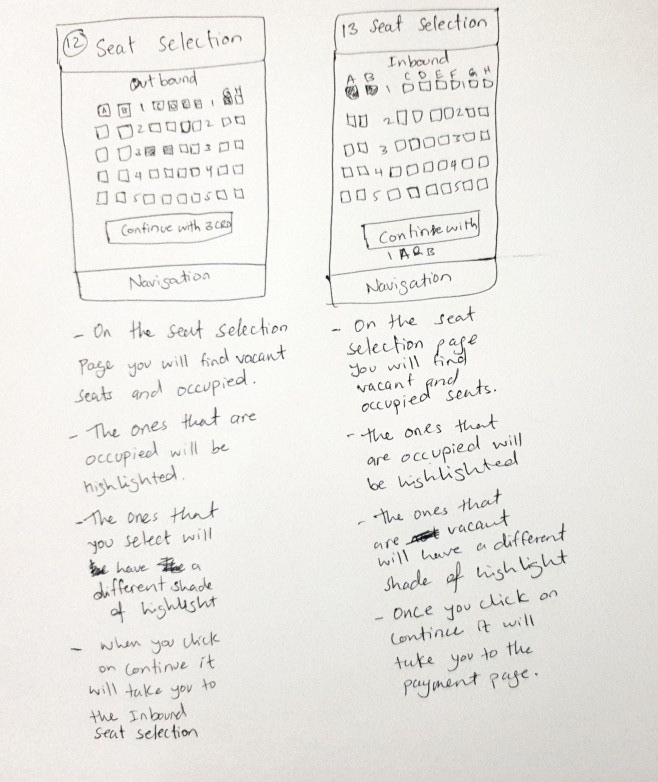 12 Seat Selection
Outbound
A B 1 C D E F 1 G H
2 2
3 3
4 4
5 5
Continue with 3CRD
Navigation
- On the seat selection
Page you will find vacant
seats and occupied.
- The ones that are
occupied will be
highlighted.
- The ones that
you select will
have a
different shade
of highlight
- when you click
on continue it
will take you to
the Inbound
seat selection
13 Seat Selection
Inbound
A B C D E F G H
1
2 2
3 3
4 4
5 5
Continue with
1 A&B
Navigation
- On the seat
selection page
you will find
vacant and
occupied seats.
- the ones that
are occupied will
be highlighted
- the ones that
are vacant
will have a different
shade of highlight
- Once you click on
continue it will
take you to the
payment page.